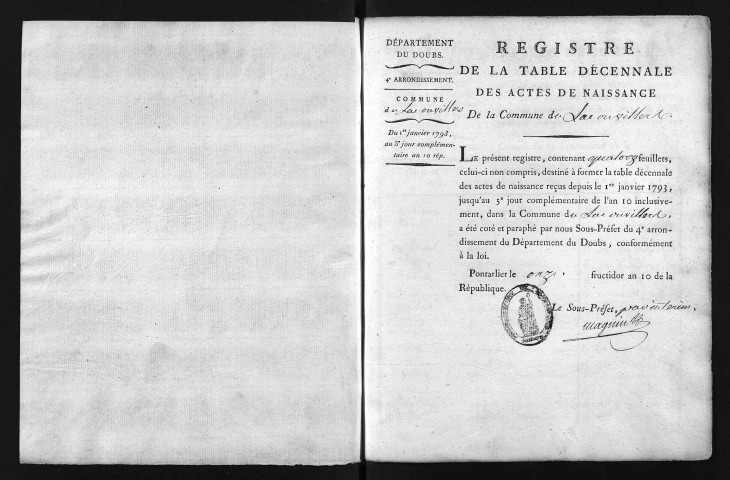 DÉPARTEMENT
DU DOUBS.
4e ARRONDISSEMENT.
COMMUNE
du Lac ou villers
Du 1er janvier 1793,
au 5e jour complémen-
taire an 10 rép.
REGISTRE
DE LA TABLE DÉCENNALE
DES ACTES DE NAISSANCE
De la Commune du Lac ou villers
LE présent registre, contenant quatorze feuillets,
celui-ci non compris, destiné à former la table décennale
des actes de naissance reçus depuis le 1er janvier 1793,
jusqu'au 5e jour complémentaire de l'an 10 inclusive-
ment, dans la Commune du Lac ou villers,
a été coté et paraphé par nous Sous-Préfet du 4e arron-
dissement du Département du Doubs, conformément
à la loi.
Pontarlier le onze fructidor an 10 de la
République.
Le Sous-Préfet, par interim.